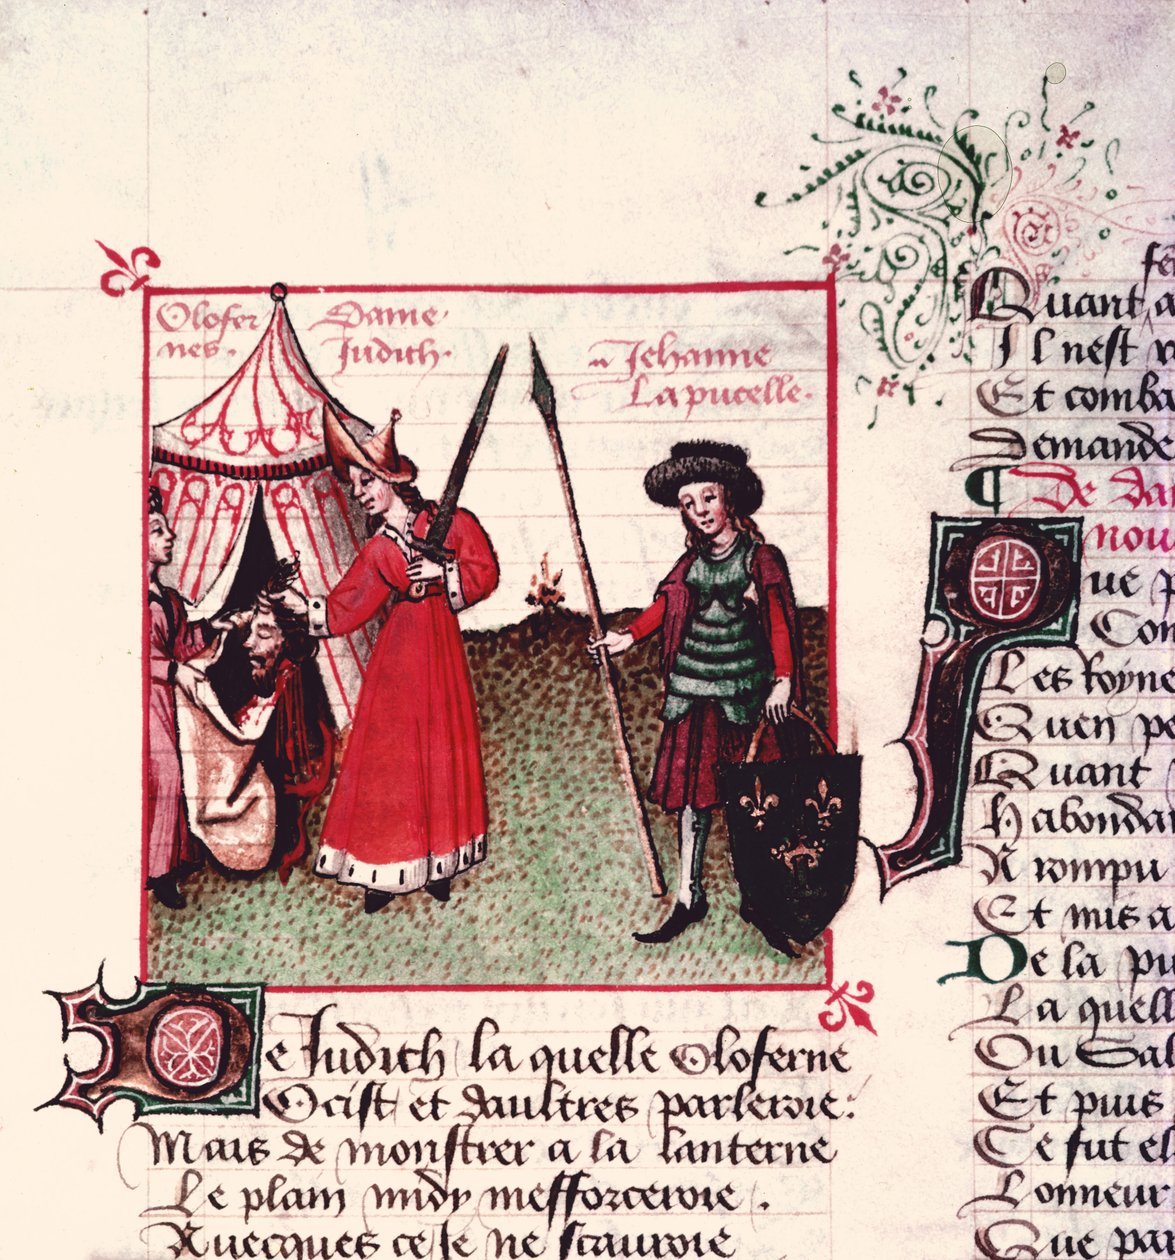 Olofer
nes.
Dame
Judith.
Jehanne
La pucelle.
De Judith la quelle Oloferne
Ocist et daultres parleroie:
Mais de monstrer a la lanterne
Le plain midy mefforceroie.
Auecques ce Je ne scauroie
Quant a
Il nest
Et comba
Demande
¶ De da
nou
Que
Con
Les Royne
Quen pe
Quant
Habonda
A rompu
Et mis a
De la pu
La quell
Ou Sal
Et puis
Ce fut el
Lonneur
Que pa